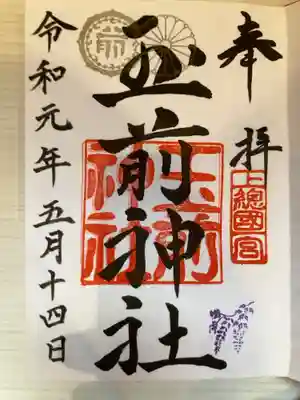 奉拝
上總國一宮
玉前神社
玉前
神社
令和元年五月十四日